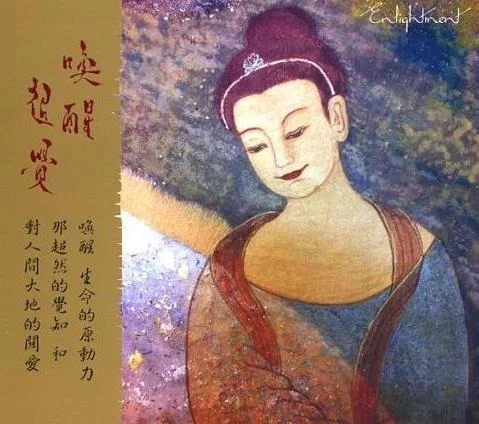 Enlightment
喚醒
超覺
喚醒 生命的原動力
那超然的覺知 和
對人間大地的關愛